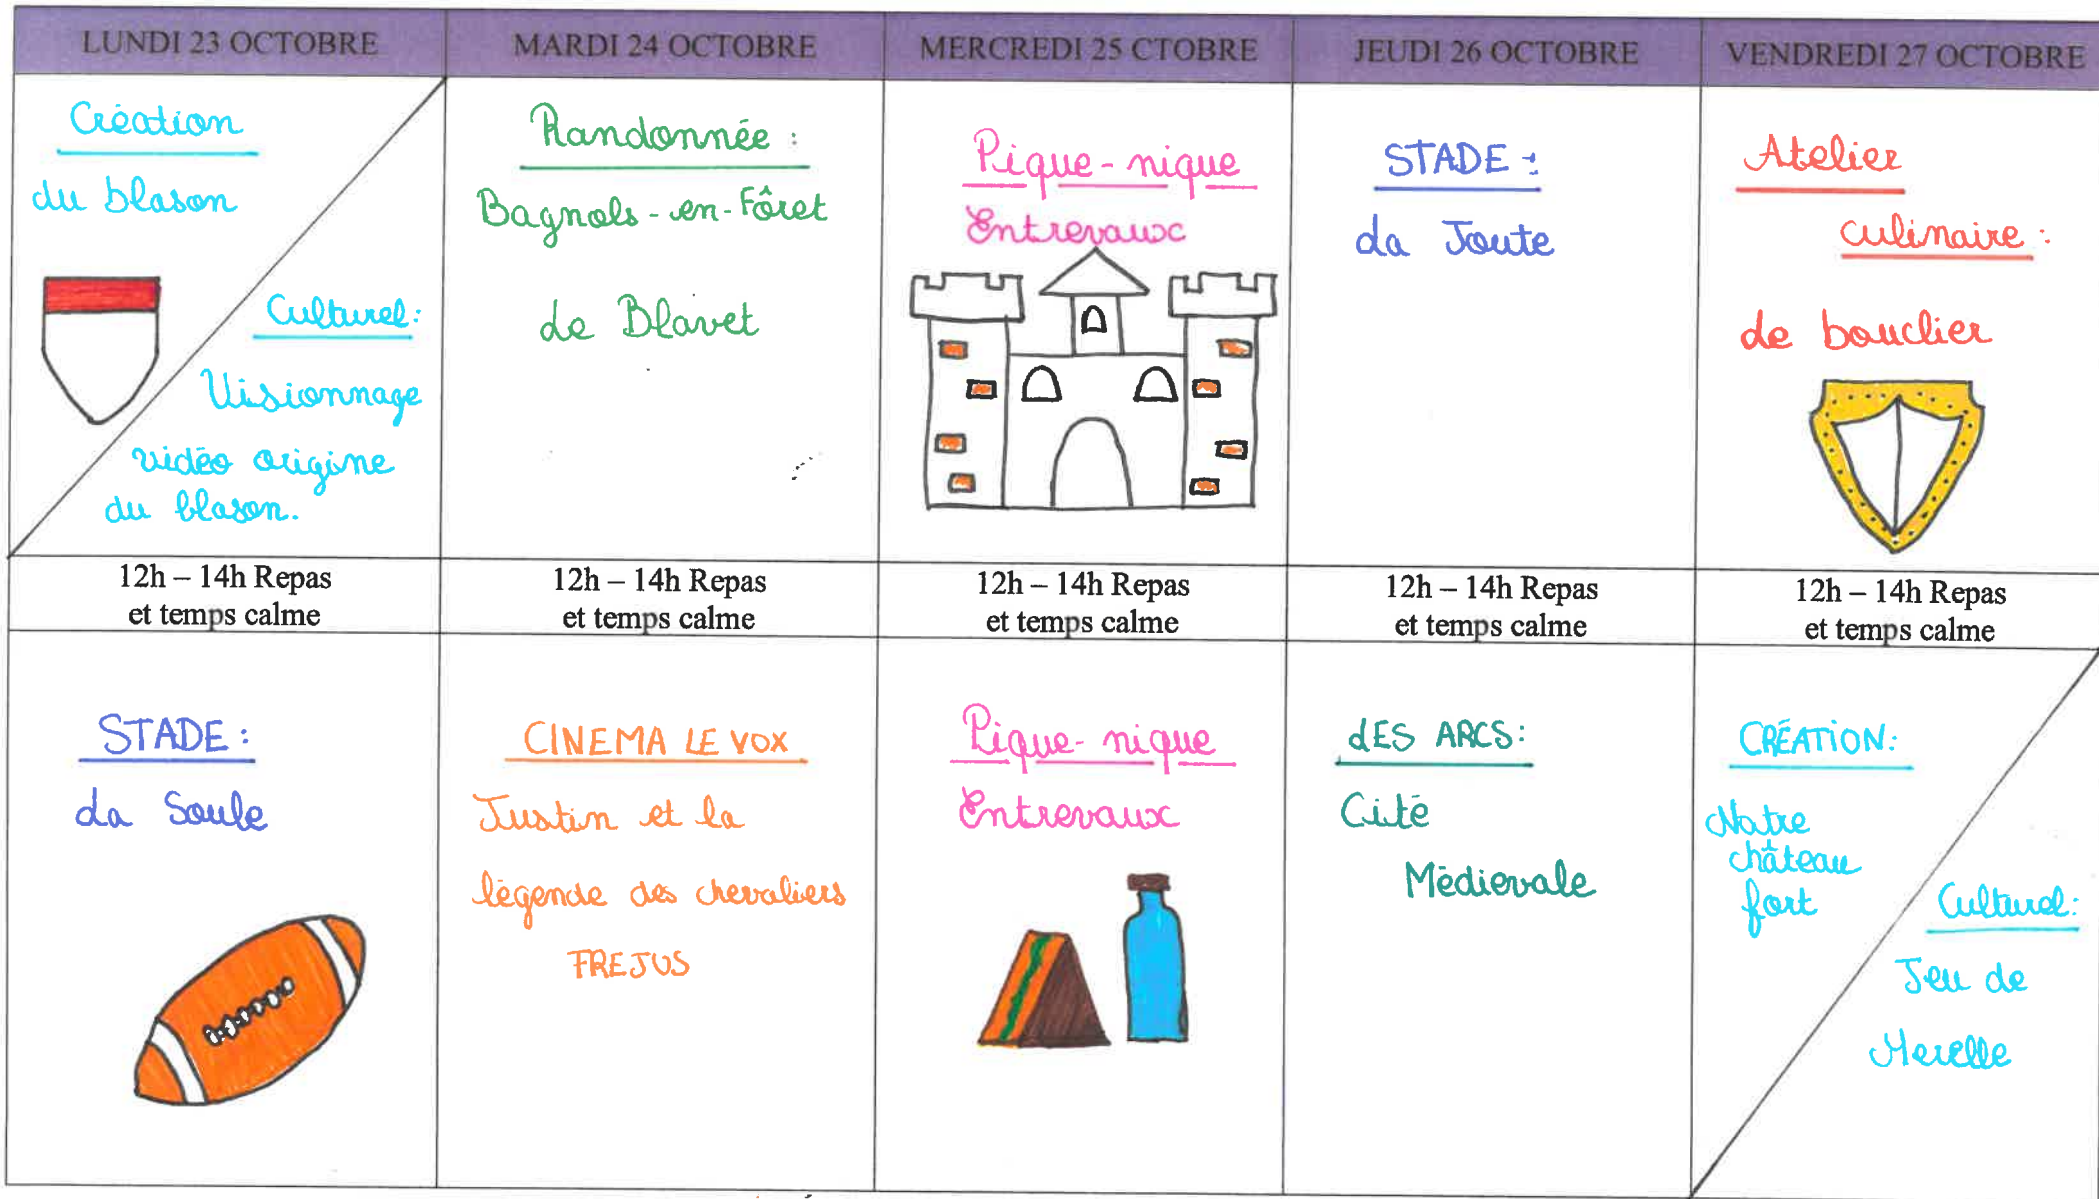 LUNDI 23 OCTOBRE
MARDI 24 OCTOBRE
MERCREDI 25 CTOBRE
JEUDI 26 OCTOBRE
VENDREDI 27 OCTOBRE
Création
du blason
Culturel:
Visionnage
vidéo origine
du blason.
Randonnée :
Bagnols-en-Fôret
Le Blavet
Pique-nique
Entrevaux
STADE :
La Joute
Atelier
culinaire :
Le bouclier
12h – 14h Repas
et temps calme
12h – 14h Repas
et temps calme
12h – 14h Repas
et temps calme
12h – 14h Repas
et temps calme
12h – 14h Repas
et temps calme
STADE :
La Soule
CINEMA LE VOX
Justin et la
légende des chevaliers
FREJUS
Pique-nique
Entrevaux
LES ARCS :
Cité
Médievale
CRÉATION:
Notre
château
fort
Culturel:
Jeu de
Merelle